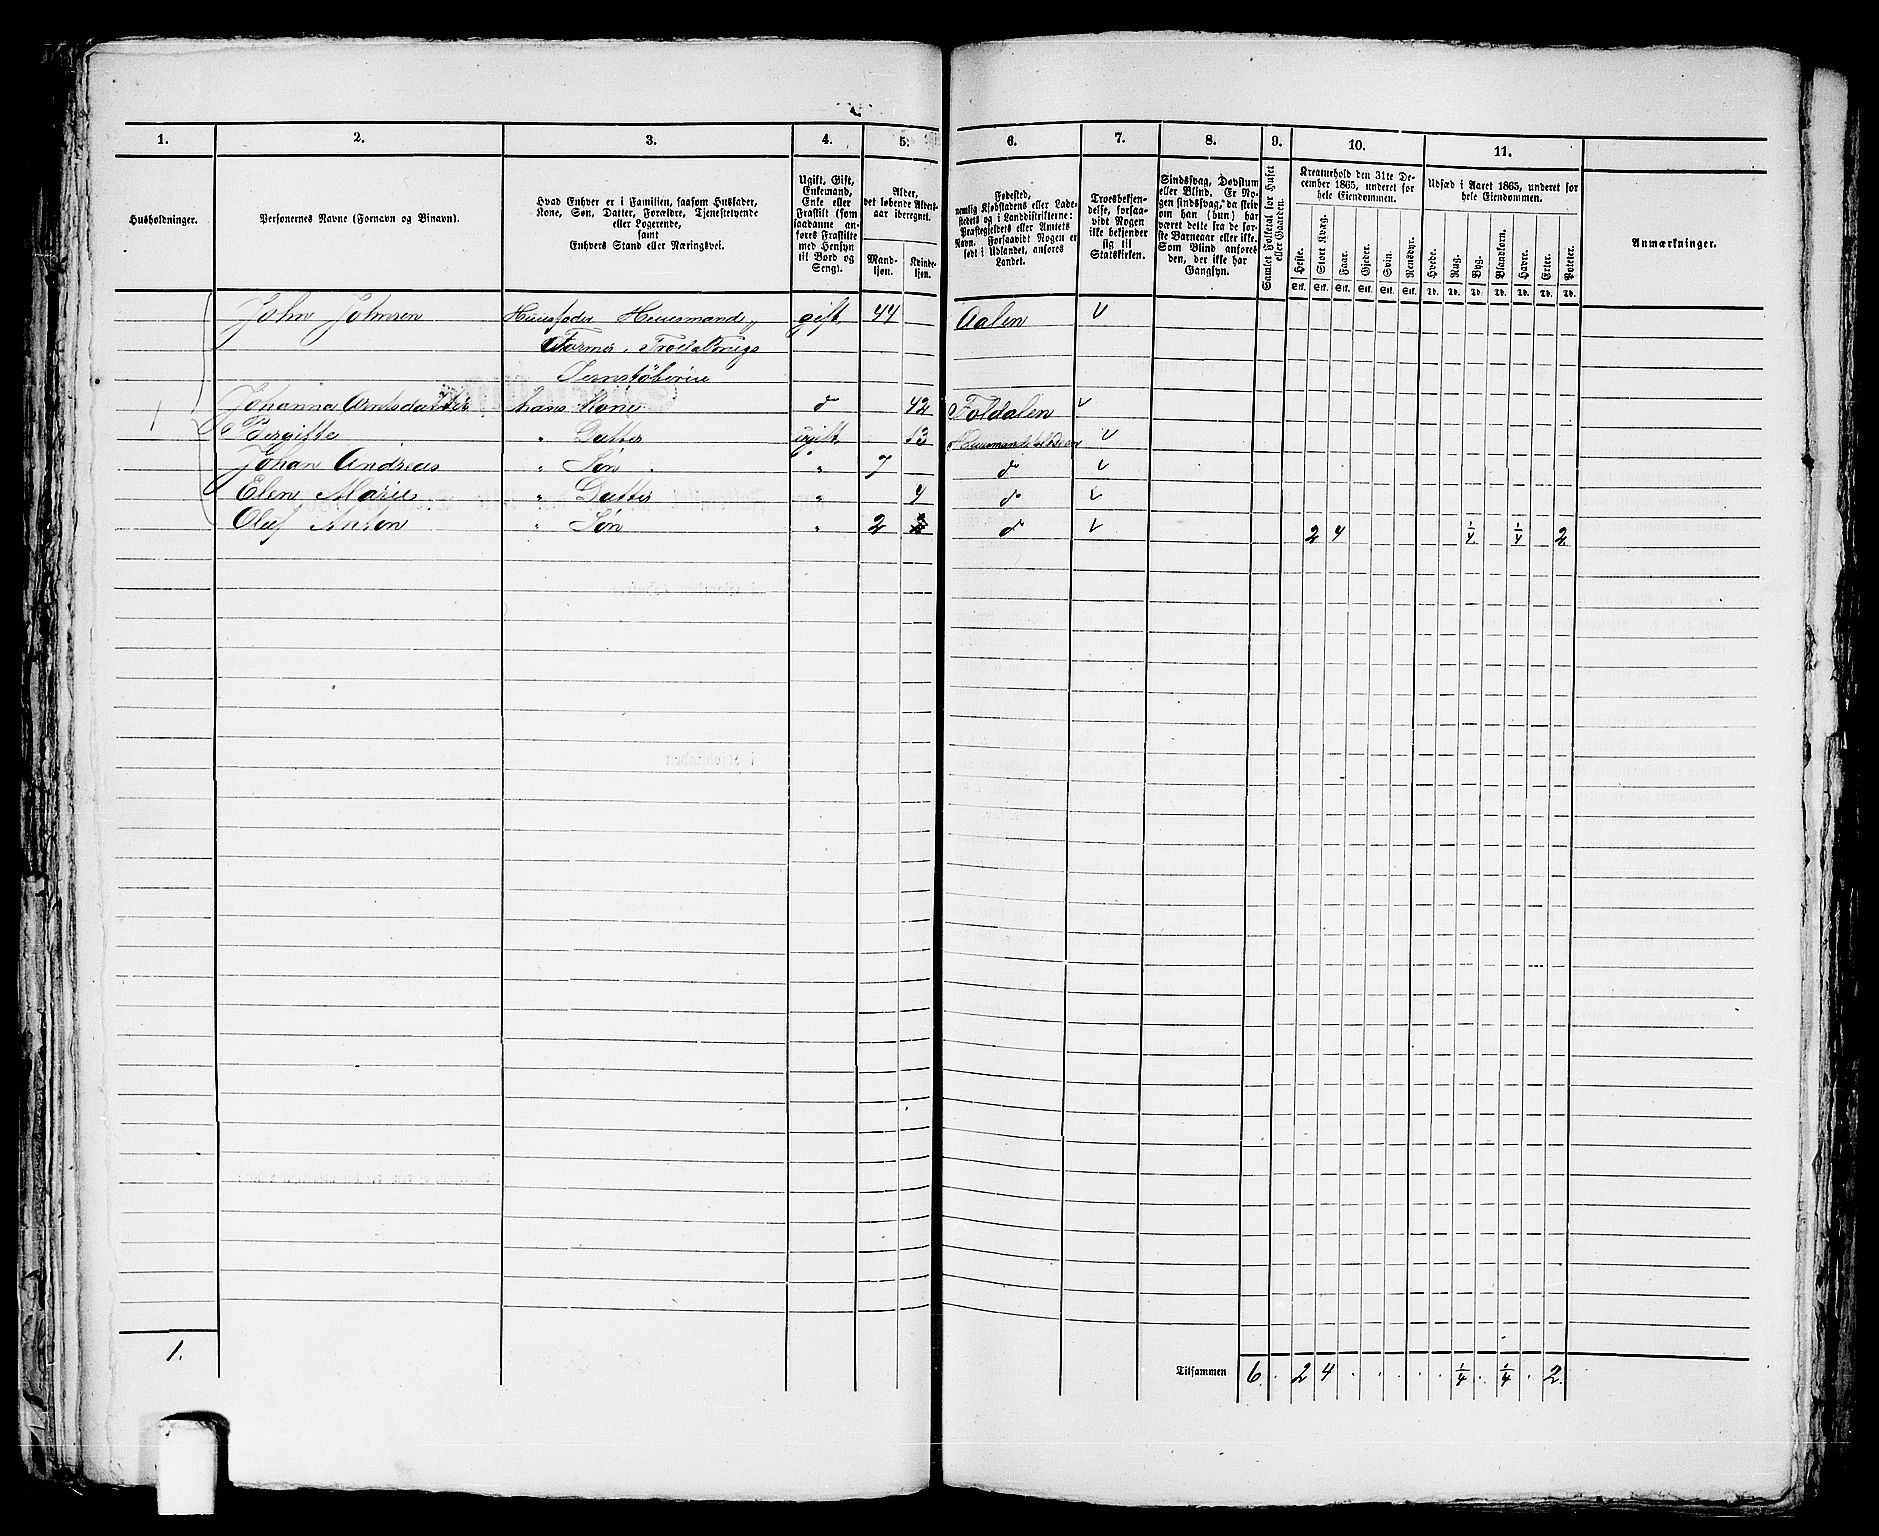 1. 2. 3. 4. 5. 6. 7. 8. 9. 10. 11.
Husholdninger.
Personernes Navne (Fornavn og Binavn).
Hvad Enhver er i Familien, saasom Husfader,
Kone, Søn, Datter, Forældre, Tjenestetyende
eller Logerende,
samt
Enhvers Stand eller Næringsvei.
Ugift, Gift,
Enkemand,
Enke eller
Fraskilt (som
saadanne an-
føres Fraskilte
med Hensyn
til Bord og
Seng).
Alder,
det løbende Alders-
aar iberegnet.
Mand-
kjøn.
Kvinde-
kjøn.
Fødested,
nemlig Kjøbstadens eller Lade-
stedets og i Landdistrikterne:
Præstegjeldets eller Amtets
Navn. Forsaavidt Nogen er
født i Udlandet, anføres
Landet.
Troesbekjen-
delse, forsaa-
vidt Nogen
ikke bekjender
sig til
Statskirken.
Sindssvag, Døvstum
eller Blind. Er No-
gen sindssvag, da skriv
om han (hun) har
været dette fra de før-
ste Barneaar eller ikke.
Som Blind anføres
den, der ikke har
Gangsyn.
Samlet Folketal for Huset
eller Gaarden.
Kreaturhold den 31te De-
cember 1865, underet for
hele Eiendommen.
Heste. Stort Kvæg. Faar. Gjeder. Svin. Rensdyr.
Stk. Stk. Stk. Stk. Stk. Stk.
Udsæd i Aaret 1865, underet for
hele Eiendommen.
Hvede. Rug. Byg. Blandkorn. Havre. Erter. Poteter.
Td. Td. Td. Td. Td. Td. Td.
Anmærkninger.
John Johnsen Huusfader Huusmand gift 44 Aalen v
Jernstøberie
1 Johanna Arntsdatter hans Kone d 42 Foldalen v
Bergitte " Datter ugift 13 v
Johan Andreas " Søn " 7 d v
Elen Marie " Datter " 4 d v
Oluf Anton " Søn " 2 d v 2 4 1/4 1/4 2
1. Tilsammen 6. 2 4 1/4 1/4 2.